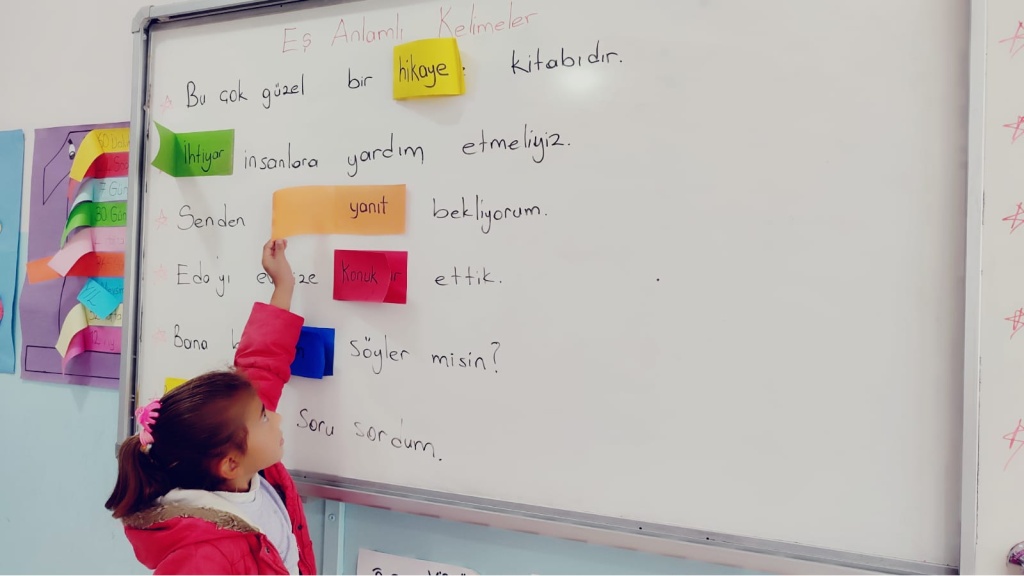 Eş Anlamlı Kelimeler
Bu çok güzel bir hikaye kitabıdır.
İhtiyar insanlara yardım etmeliyiz.
Senden yanıt bekliyorum.
Eda'yı Konuk ettik.
Bana söyler misin?
Soru sordum.